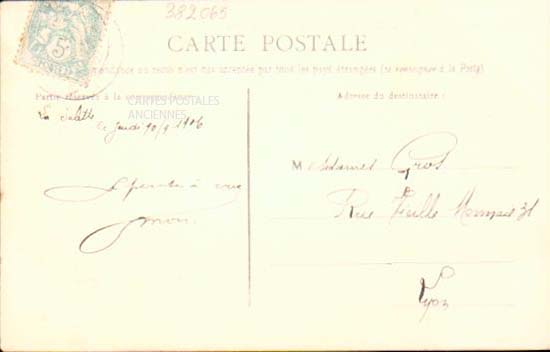 382065
5c
CARTE POSTALE
La correspondance au recto n'est pas acceptée par tous les pays étrangers (se renseigner à la Poste)
Partie réservée à la correspondance
Adresse du destinataire
CARTES POSTALES
ANCIENNES
La Salette
le Jeudi 1906
Mesdames Gros
Je pense à vous
Rue Vieille Monnaie 31
Lyon